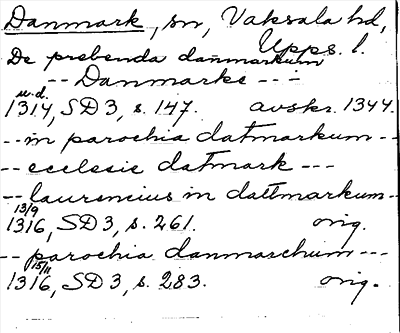 Danmark, sn, Vaksala hd,
Upps. l.
De prebenda danmarkum
-- Danmarks ---
u.d.
1314, SD 3, s. 147. avskr. 1344.
-- in parochia datmarkum --
-- ecclesie datmark ---
-- laurencius in dattmarkum --
13/9
1316, SD 3, s. 261. orig.
-- parochia danmarchum ---
15/11
1316, SD 3, s. 283. orig.